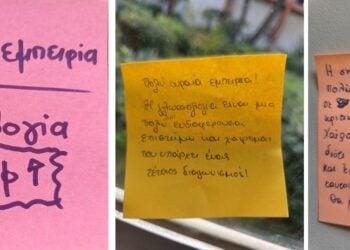 εμπειρία
λογία
ρ↑
Πολύ ωραία εμπειρία!
Η γλωσσολογία είναι μια
πολύ ενδιαφέρουσα
επιστήμη και χαίρομαι
που υπάρχει ένας
τέτοιος διαγωνισμός!
Η
πολύ
σε
Χαίρο
διότι
και έ
θα